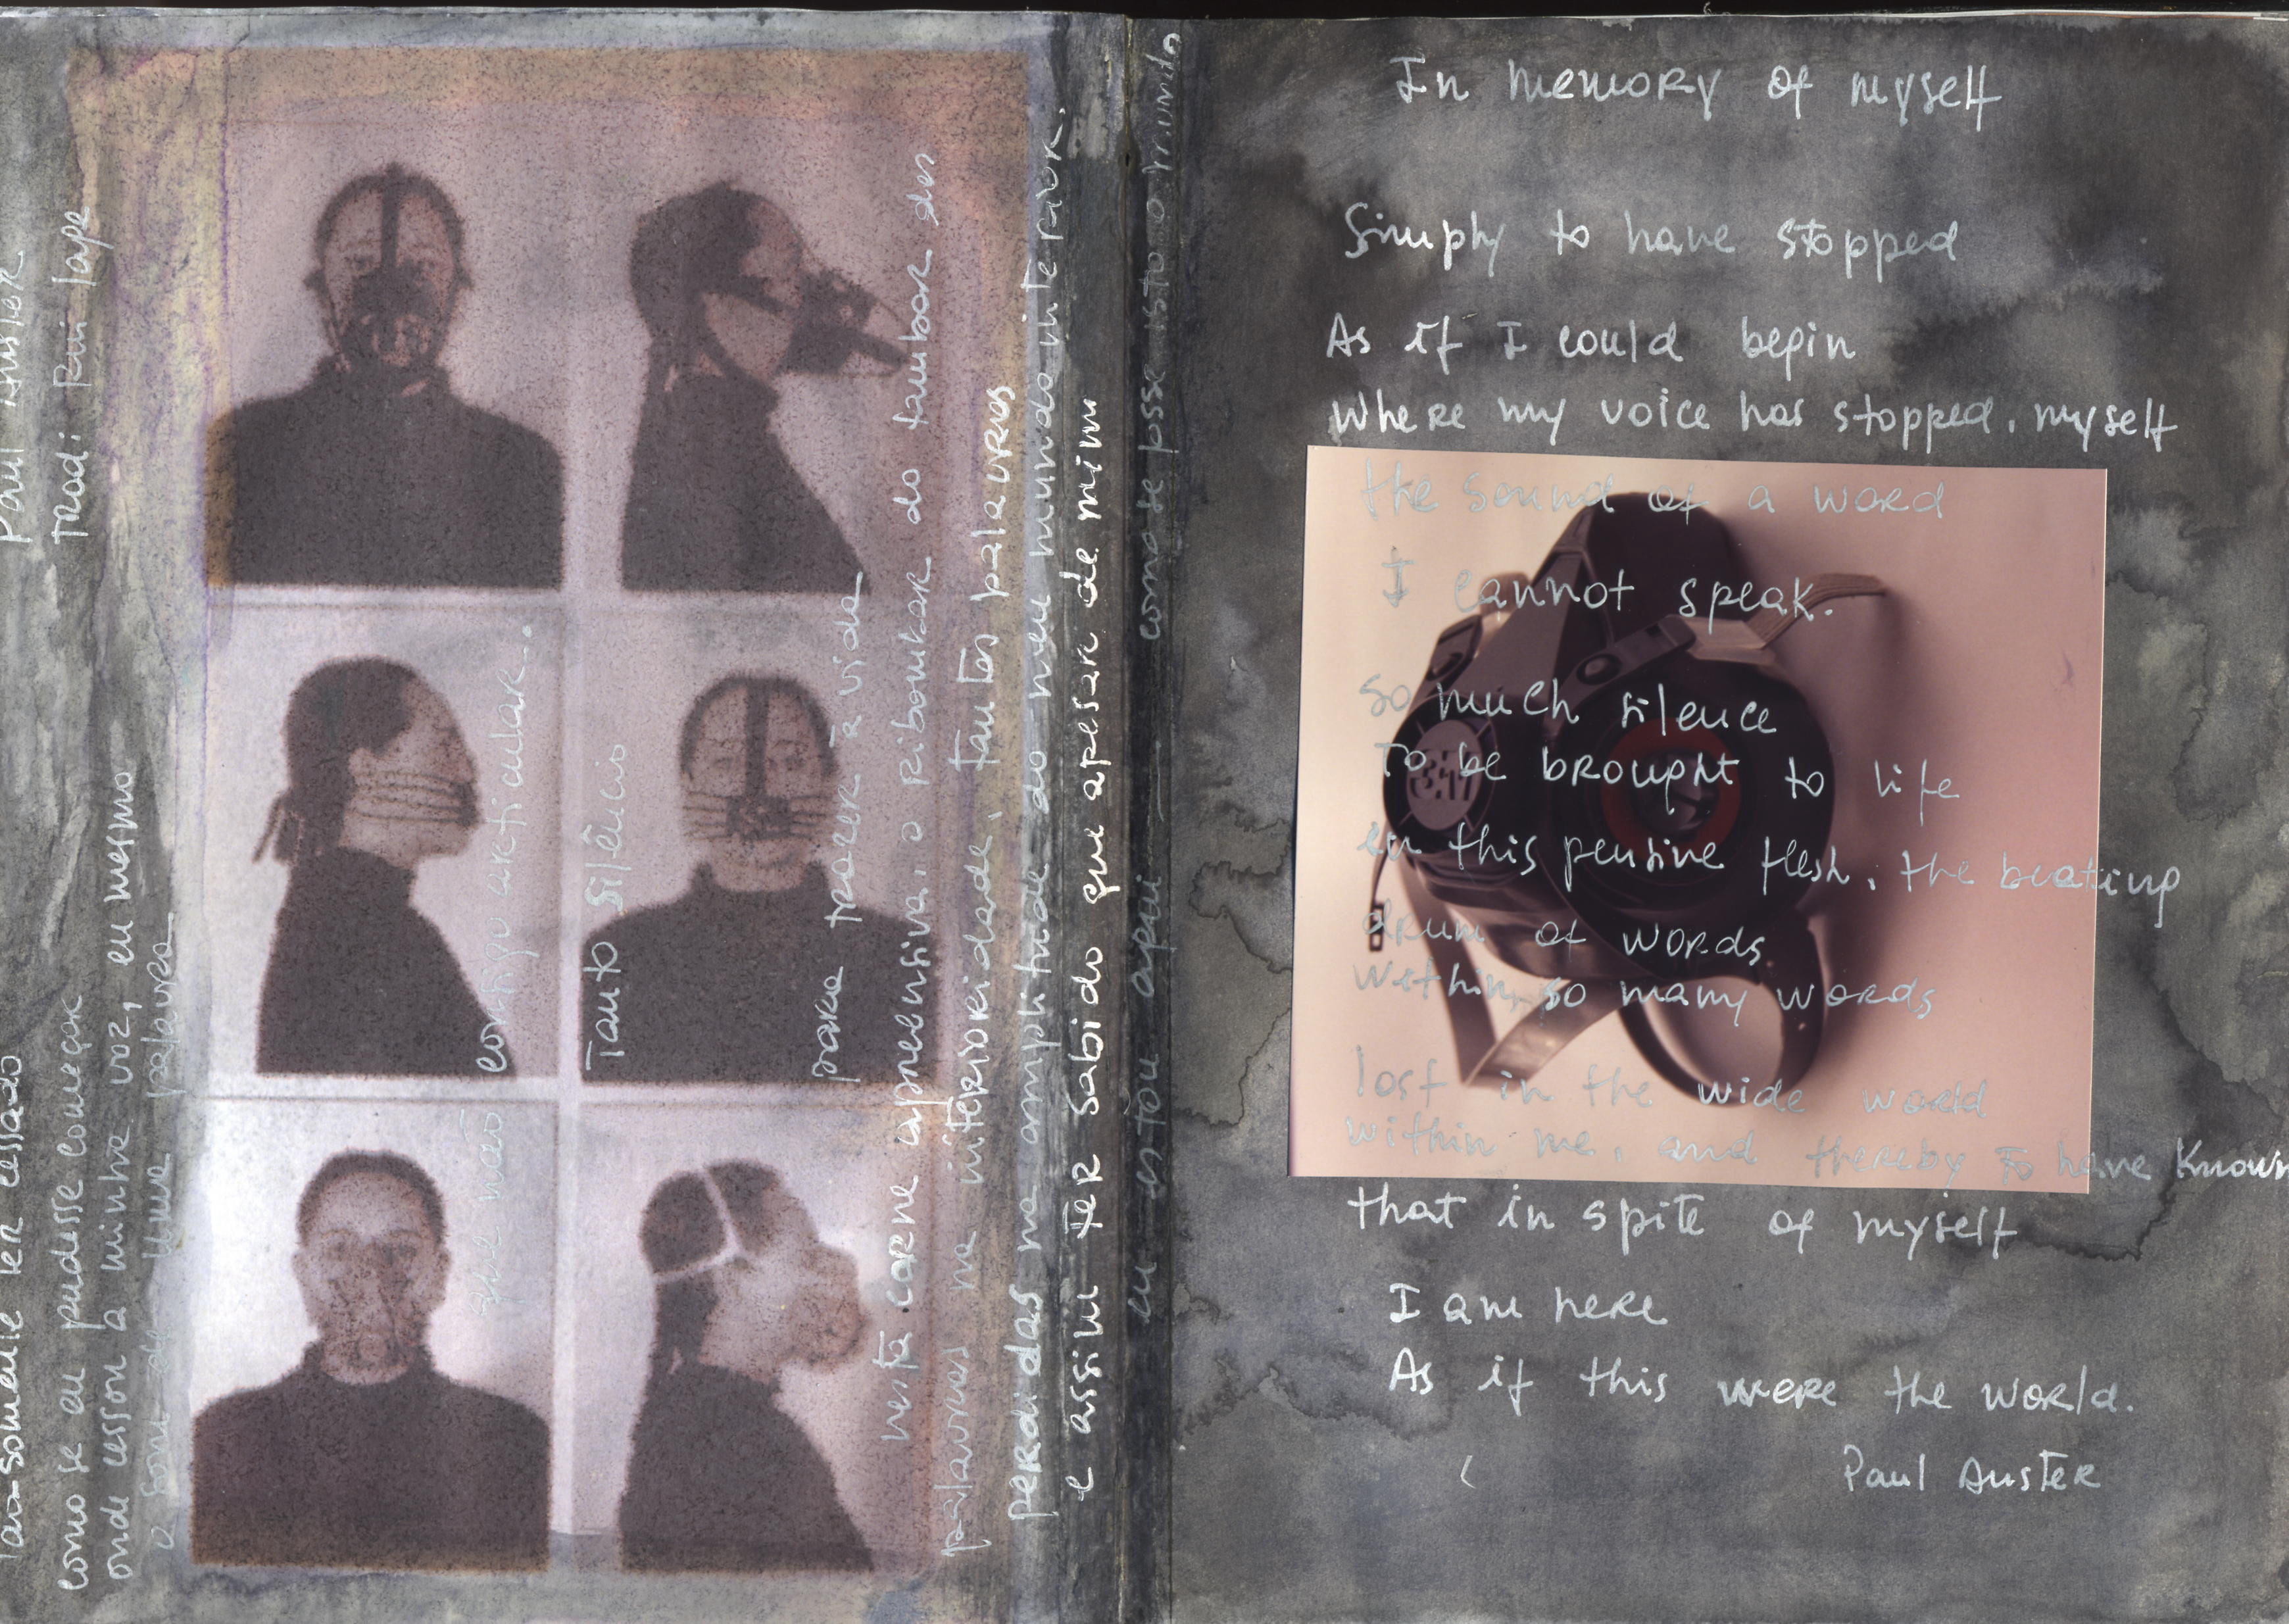 tão-somente ter cessado
como se eu pudesse começar
onde cessou a minha voz, eu mesmo
o som de uma palavra
que não consigo articular.
Tanto silêncio
para trazer à vida
nesta carne apreensiva, o ribombar do tambor das
palavras na interioridade, tantas palavras
perdidas na amplitude do meu mundo interior,
e assim ter sabido que apesar de mim
eu estou aqui — como se fosse isto o mundo
Paul Auster
Trad: Rui Lage
In memory of myself
Simply to have stopped
As if I could begin
Where my voice has stopped, myself
the sound of a word
I cannot speak.
So much silence
To be brought to life
in this pensive flesh, the beating
drum of words
Within, so many words
lost in the wide world
within me, and thereby to have known
that in spite of myself
I am here
As if this were the world.
Paul Auster